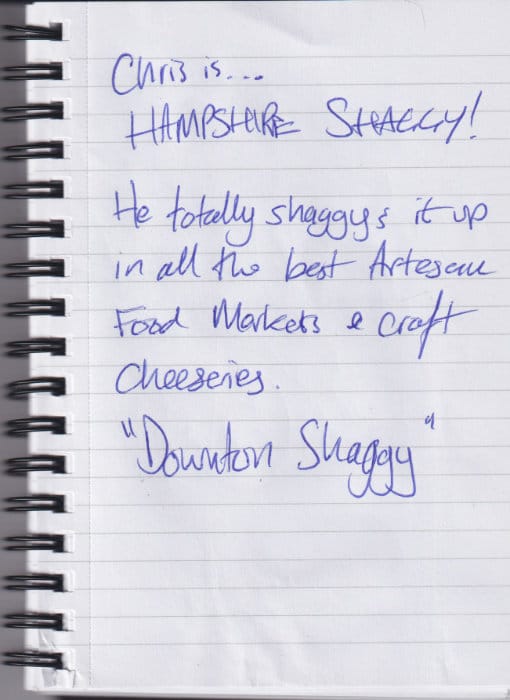 Chris is...
HAMPSHIRE SHAGGY!
He totally shaggys it up
in all the best Artesan
Food Markets & craft
Cheeseries.
"Downton Shaggy"